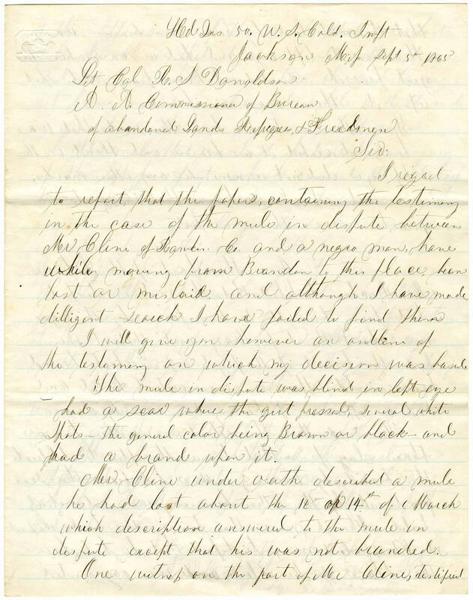 Hd Qrs 50. U. S. Cold. Inft
Jackson Miss Sept 5th 1865
Lt Col R. S Donaldson
A. A. Commissioner of Bureau
of abandoned Lands Refugees & Freedmen
Sir:
I regret
to report that the papers, containing the testimony
in the case of the mule in dispute between
Mr Cline of Rankin Co and a negro man, have
while moving from Brandon to this place been
lost or mislaid and although I have made
dilligent search I have failed to find them
I will give you however an outline of
the testimony on which my decision was based
The mule in dispute was blind in left eye
had a scar where the girt pressed, several white
Spots - the general color being Brown or black - and
had a brand upon it.
Mr. Cline under oath described a mule
he had lost about the 10 or 14th of March
which description answered to the mule in
dispute except that his was not branded.
One witness on the part of Mr Cline testified